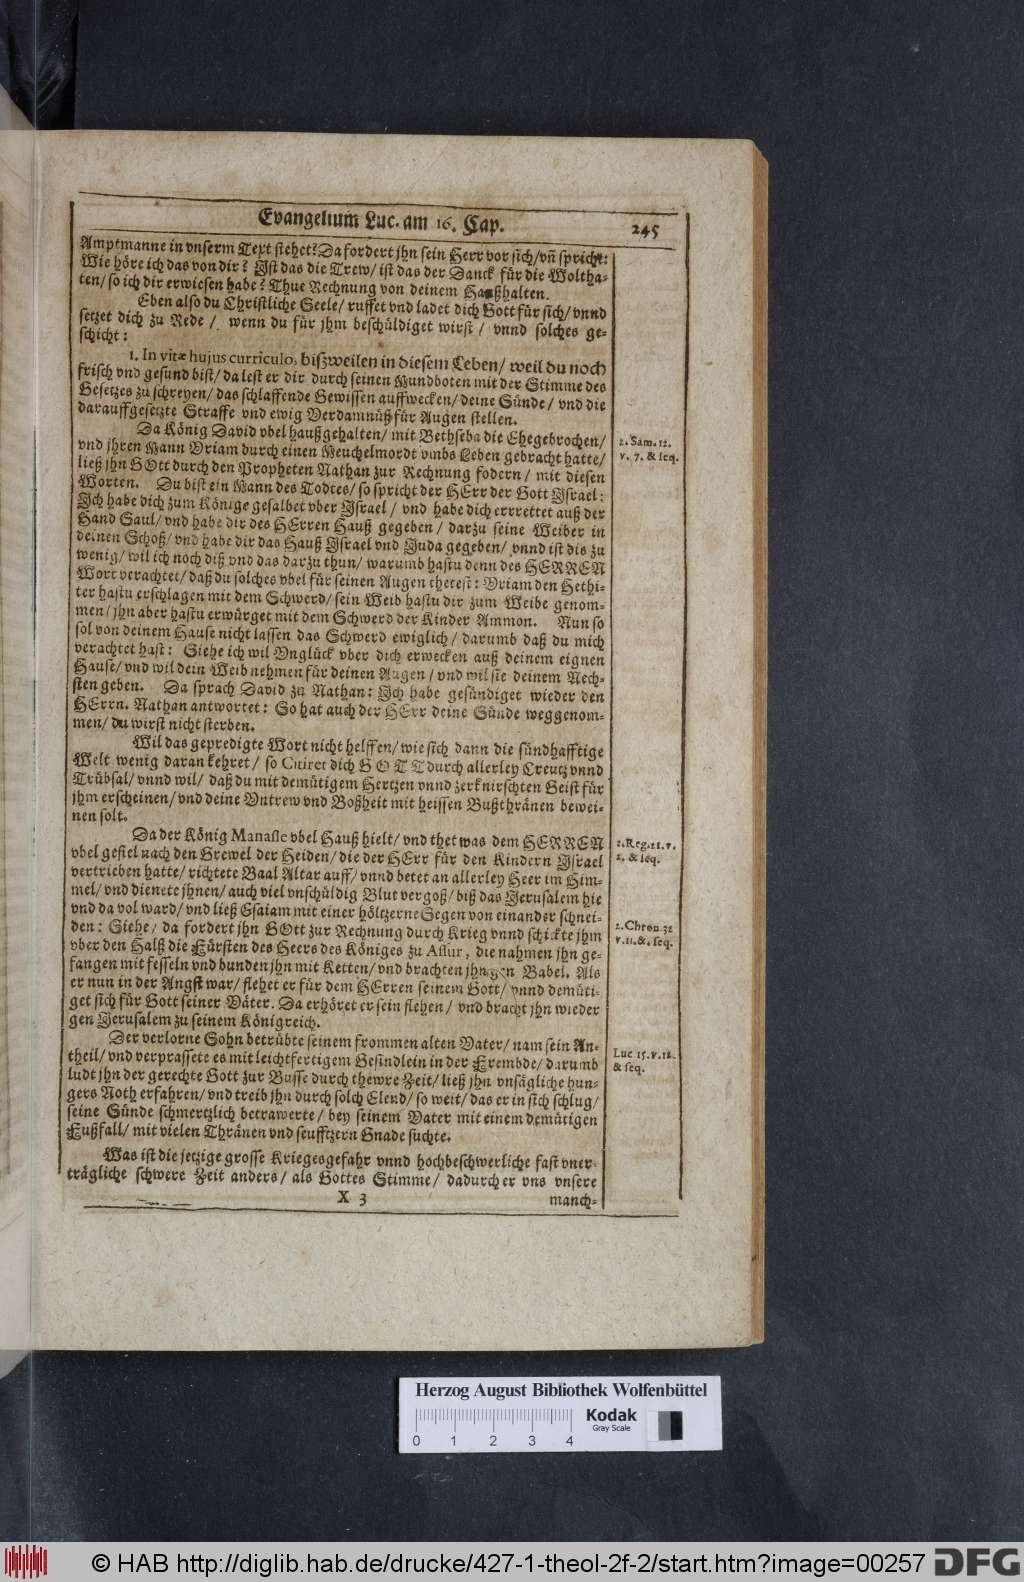 Evangelium Luc. am 16. Cap.
245
Amptmanne in vnserm Text stehet? Da fordert jhn sein Herr vor sich/ vn̄ spricht:
Wie höre ich das von dir? Ist das die Trew/ ist das der Danck für die Woltha-
ten/ so ich dir erwiesen habe? Thue Rechnung von deinem Haußhalten.
Eben also du Christliche Seele/ ruffet vnd ladet dich Gott für sich/ vnnd
setzet dich zu Rede/ wenn du für jhm beschüldiget wirst/ vnnd solches ge-
schicht:
1. In vitæ hujus curriculo, biszweilen in diesem Leben/ weil du noch
frisch vnd gesund bist/ da lest er dir durch seinen Mundboten mit der Stimme des
Gesetzes zu schreyen/ das schlaffende Gewissen auffwecken/ deine Sünde/ vnd die
darauffgesetzte Straffe vnd ewig Verdamnüß für Augen stellen.
Da König David vbel haußgehalten/ mit Bethseba die Ehegebrochen/
vnd jhren Mann Vriam durch einen Meuchelmordt vmbs Leben gebracht hatte/
ließ jhn GOtt durch den Propheten Nathan zur Rechnung fodern/ mit diesen
Worten. Du bist ein Mann des Todtes/ so spricht der HErr der Gott Israel:
Ich habe dich zum Könige gesalbet vber Israel/ vnd habe dich errrettet auß der
Hand Saul/ vnd habe dir des HErren Hauß gegeben/ darzu seine Weiber in
deinen Schoß/ vnd habe dir das Hauß Israel vnd Juda gegeben/ vnnd ist dis zu
wenig/ wil ich noch diß vnd das darzu thun/ warumb hastu denn des HERREN
Wort verachtet/ daß du solches vbel für seinen Augen thetest: Vriam den Hethi-
ter hastu erschlagen mit dem Schwerd/ sein Weib hastu dir zum Weibe genom-
men/ jhn aber hastu erwürget mit dem Schwerd der Kinder Ammon. Nun so
sol von deinem Hause nicht lassen das Schwerd ewiglich/ darumb daß du mich
verachtet hast: Siehe ich wil Vnglück vber dich erwecken auß deinem eignen
Hause/ vnd wil dein Weib nehmen für deinen Augen/ vnd wil sie deinem Nech-
sten geben. Da sprach David zu Nathan: Ich habe gesündiget wieder den
HErrn. Nathan antwortet: So hat auch der HErr deine Sünde weggenom-
men/ du wirst nicht sterben.
Wil das gepredigte Wort nicht helffen/ wie sich dann die sündhafftige
Welt wenig daran kehret/ so Citiret dich GOTT durch allerley Creutz vnnd
Trübsal/ vnnd wil/ daß du mit demütigem Hertzen vnnd zerknirschten Geist für
jhm erscheinen/ vnd deine Vntrew vnd Boßheit mit heissen Bußthränen bewei-
nen solt.
Da der König Manasse vbel Hauß hielt/ vnd thet was dem HERREN
vbel gefiel nach den Grewel der Heiden/ die der HErr für den Kindern Israel
vertrieben hatte/ richtete Baal Altar auff/ vnnd betet an allerley Heer im Him-
mel/ vnd dienete jhnen/ auch viel vnschüldig Blut vergoß/ biß das Jerusalem hie
vnd da vol ward/ vnd ließ Esaiam mit einer höltzerne Segen von einander schnei-
den: Siehe/ da fordert jhn GOtt zur Rechnung durch Krieg vnnd schickte jhm
vber den Halß die Fürsten des Heers des Königes zu Assur, die nahmen jhn ge-
fangen mit fesseln vnd bunden jhn mit Ketten/ vnd brachten jhn gen Babel. Als
er nun in der Angst war/ flehet er für dem HErren seinem Gott/ vnnd demüti-
get sich für Gott seiner Väter. Da erhöret er sein flehen/ vnd bracht jhn wieder
gen Jerusalem zu seinem Königreich.
Der verlorne Sohn betrübte seinem frommen alten Vater/ nam sein An-
theil/ vnd verprassete es mit leichtfertigem Gesindlein in der Frembde/ darumb
ludt jhn der gerechte Gott zur Busse durch thewre Zeit/ ließ jhn vnsägliche hun-
gers Noth erfahren/ vnd treib jhn durch solch Elend/ so weit/ das er in sich schlug/
seine Sünde schmertzlich betrawerte/ bey seinem Vater mit einem demütigen
Fußfall/ mit vielen Thränen vnd seufftzern Gnade suchte.
Was ist die jetzige grosse Kriegesgefahr vnnd hochbeschwerliche fast vner-
trägliche schwere Zeit anders/ als Gottes Stimme/ dadurch er vns vnsere
X 3
manch-
2. Sam. 12.
v. 7. & seq.
2. Reg. 21. v.
2. & seq.
2. Chron. 32
v. 11. &. seq.
Luc 15. v. 12.
& seq.
Herzog August Bibliothek Wolfenbüttel
Kodak
Gray Scale
0 1 2 3 4
© HAB http://diglib.hab.de/drucke/427-1-theol-2f-2/start.htm?image=00257
DFG